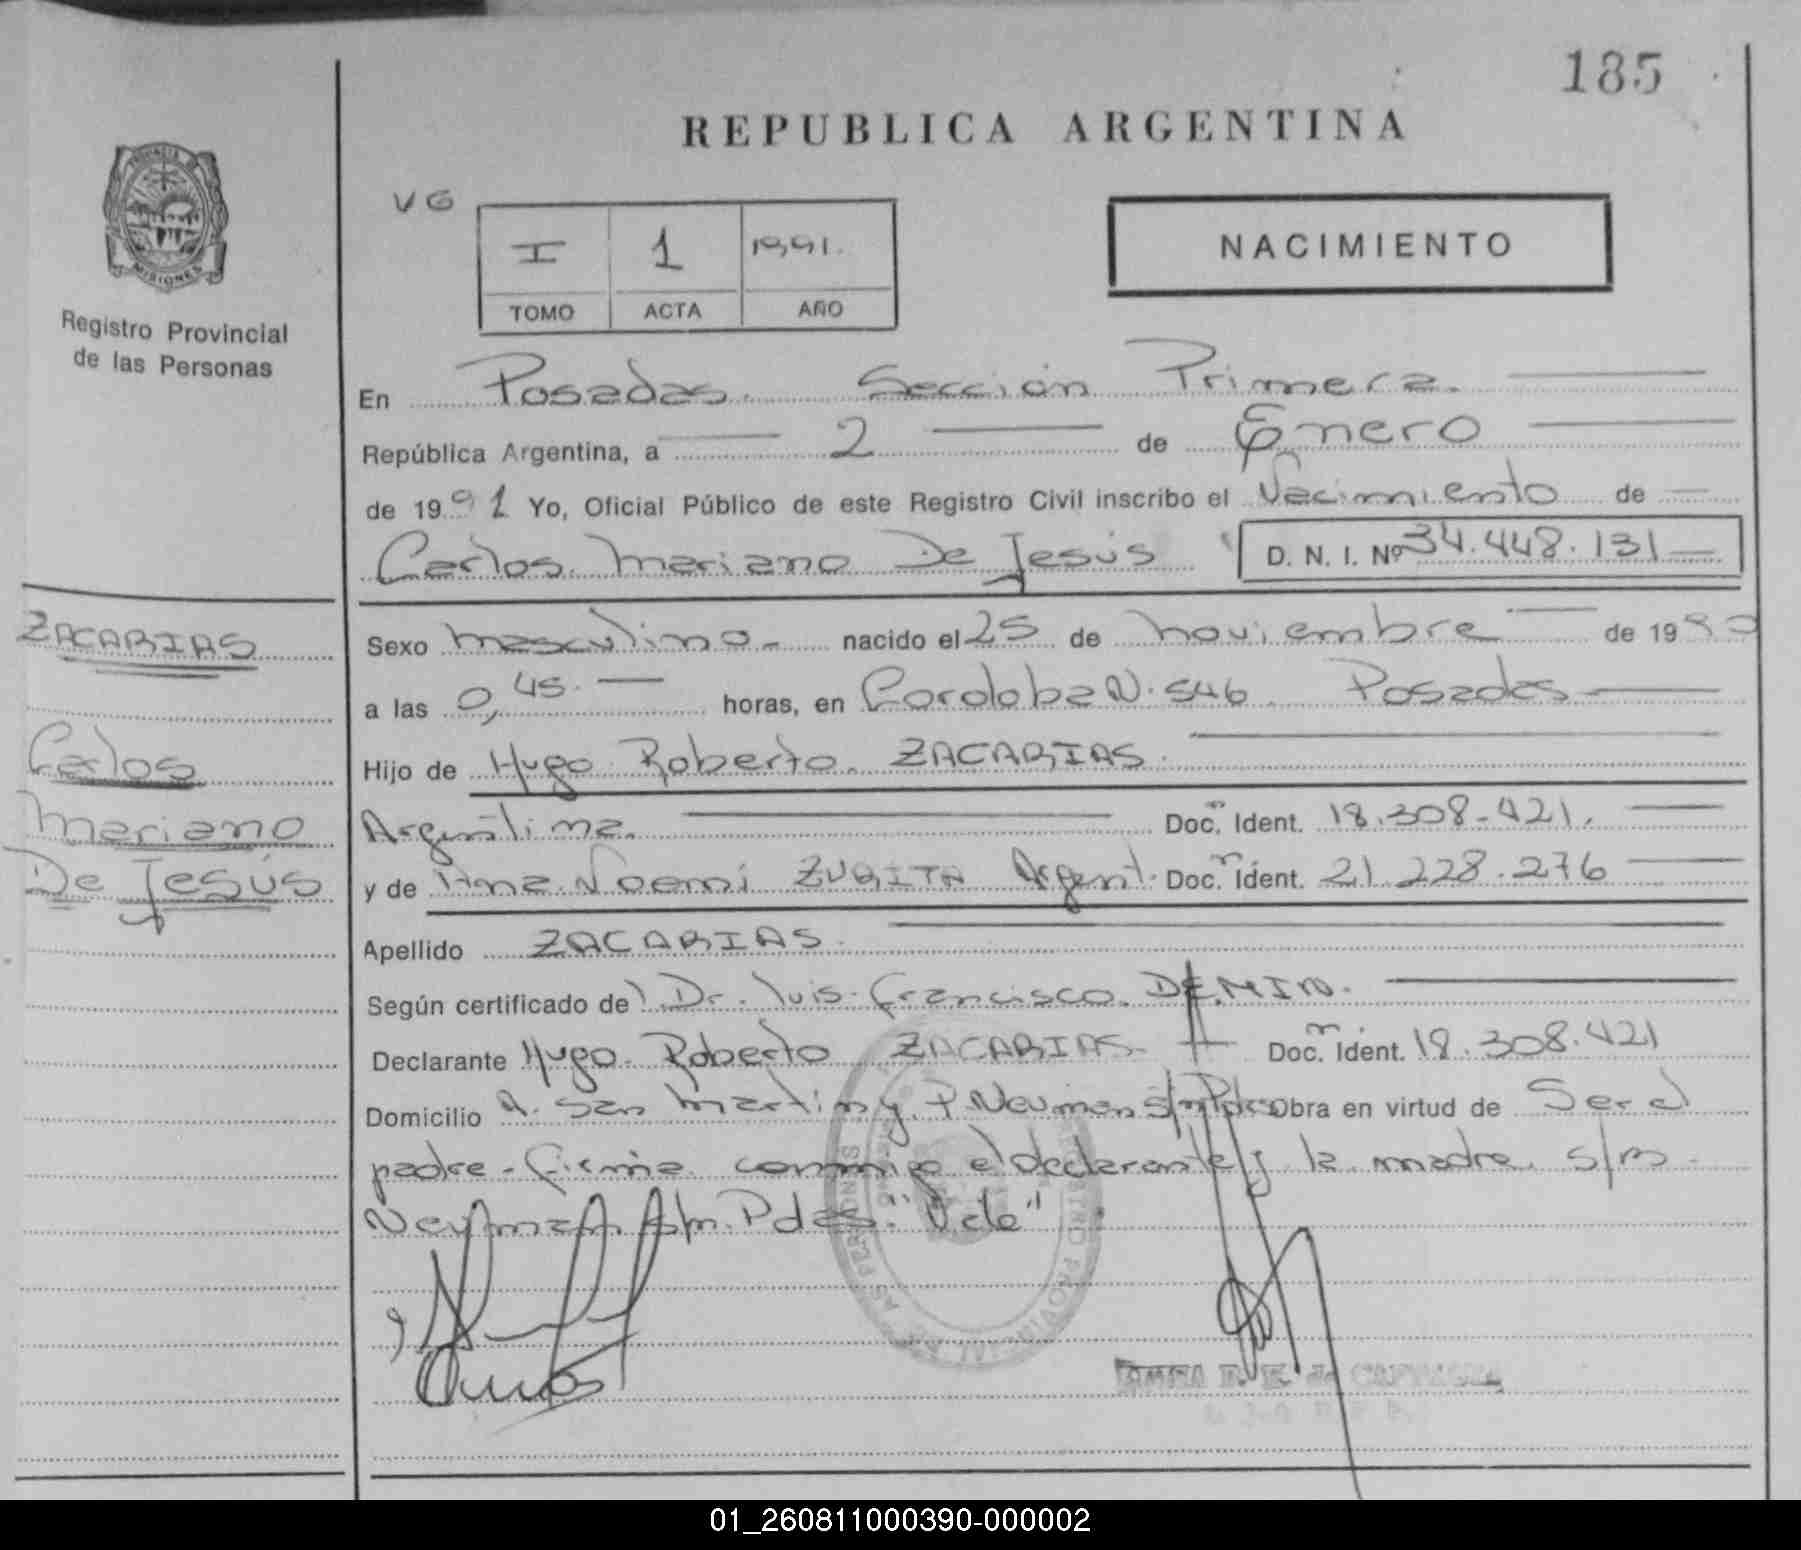 185
REPUBLICA ARGENTINA
VG
I 1 1991.
TOMO ACTA AÑO
NACIMIENTO
MISIONES
Registro Provincial
de las Personas
En Posadas. Sección Primera.
República Argentina, a 2 de Enero
de 1991 Yo, Oficial Público de este Registro Civil inscribo el Nacimiento de
Carlos Mariano De Jesús D. N. I. Nº 34.448.131
ZACARIAS
Carlos
Mariano
De Jesús
Sexo masculino.- nacido el 25 de noviembre de 1990
a las 0,45. horas, en Cordoba N. 546 Posadas
Hijo de Hugo Roberto ZACARIAS.
Argentina. Doc. Ident. 18.308.421.
y de Ana Noemi ZURITA Argent. Doc. Ident. 21.228.276
Apellido ZACARIAS.
Según certificado de Dr. Luis Francisco DEMIN.
Declarante Hugo Roberto ZACARIAS. Doc. Ident. 18.308.421
Domicilio A. San Martin y P. Neuman s/n Pdas Obra en virtud de Ser el
padre. Firma conmigo el declarante y la madre s/n
Neuman s/n. Pdas. "Vale"
01_260811000390-000002